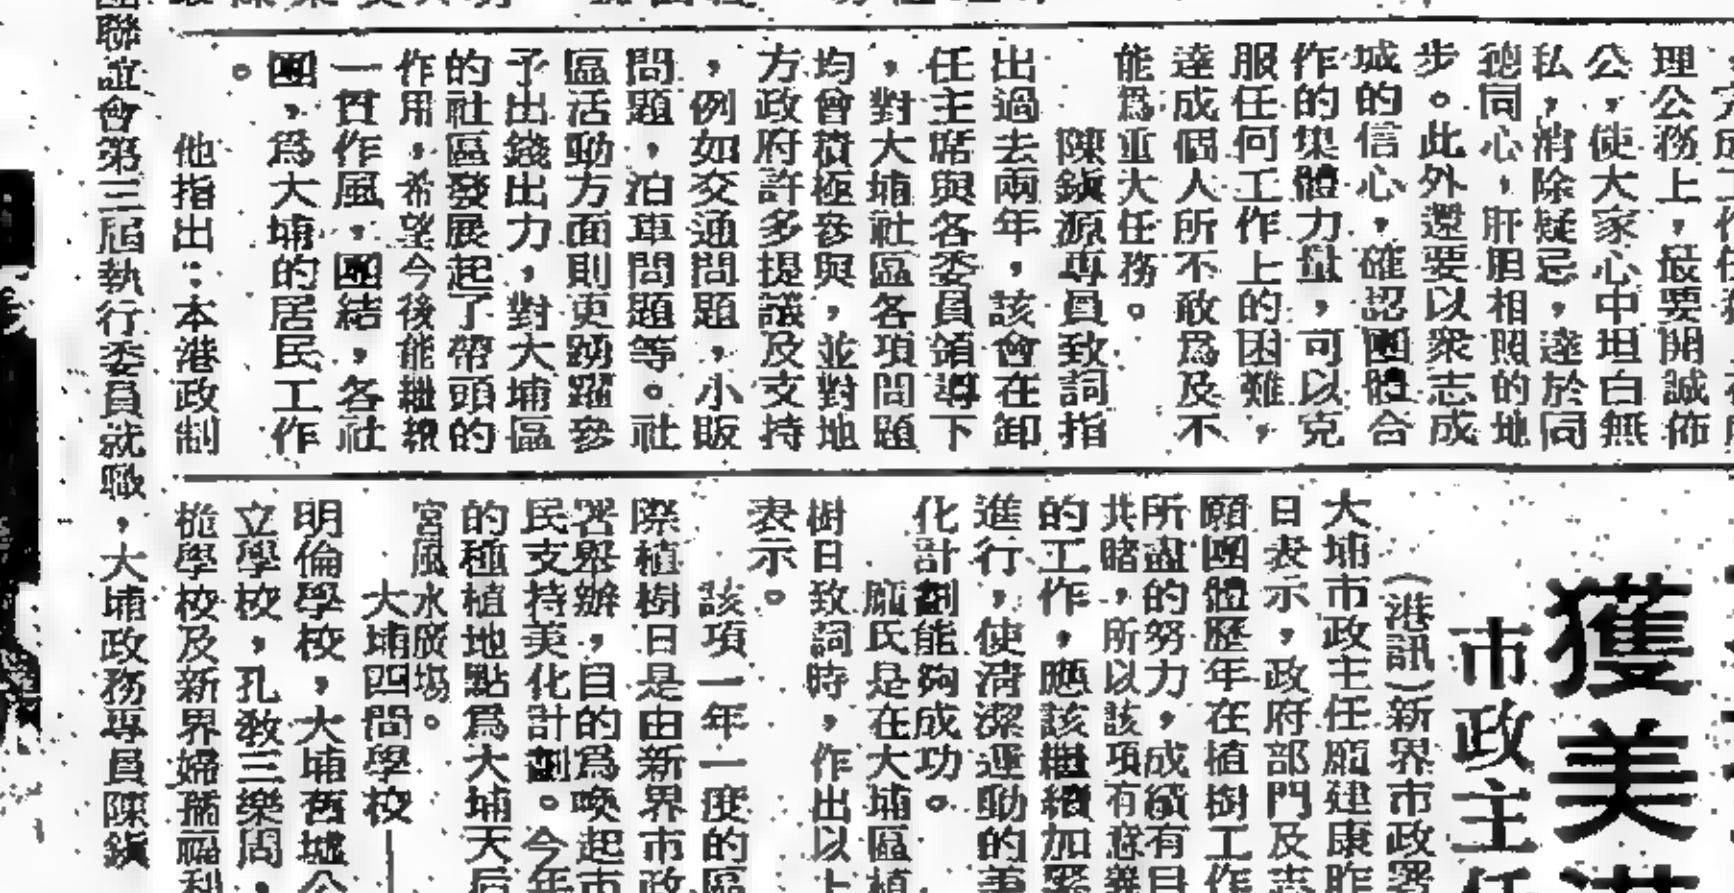 理公務上，最要開誠佈
公，使大家心中坦白無
私，消除疑忌，達於同
德同心，肝胆相照的地
步。此外還要以衆志成
城的信心，確認團體合
作的集體力量，可以克
服任何工作上的困難，
達成個人所不敢爲及不
能爲重大任務。
陳鎮源專員致詞指
出過去兩年，該會在卸
任主席與各委員領導下
，對大埔社區各項問題
均會積極參與，並對地
方政府許多提議及支持
，例如交通問題，小販
問題，泊車問題等。社
區活動方面則更踴躍參
予出錢出力，對大埔區
的社區發展起了帶頭的
作用，希望今後能繼
一貫作風，團結，各社
團，爲大埔的居民工作
。
他指出：本港政制
聯誼會第三屆執行委員就職，大埔政務專員陳鎮
獲美
市政主任
（港訊）新界市政署
大埔市政主任建康昨
日表示，政府部門及志
願團體歷年在植樹工作
所盡的努力，成績有目
共睹，所以該項有意義
的工作，應該繼續加
進行，使清潔運動的美
化計劃能夠成功。
氏是在大埔區植
樹日致詞時，作出以上
表示。
該項一年一度的區
際植樹日是由新界市政
署舉辦，自的爲喚起市
民支持美化計劃。今年
的種植地點爲大埔天后
宮風水廣場。
大埔四間學校—
明倫學校，大埔舊墟公
立學校，孔教三樂周，
學校及新界婦孺福利